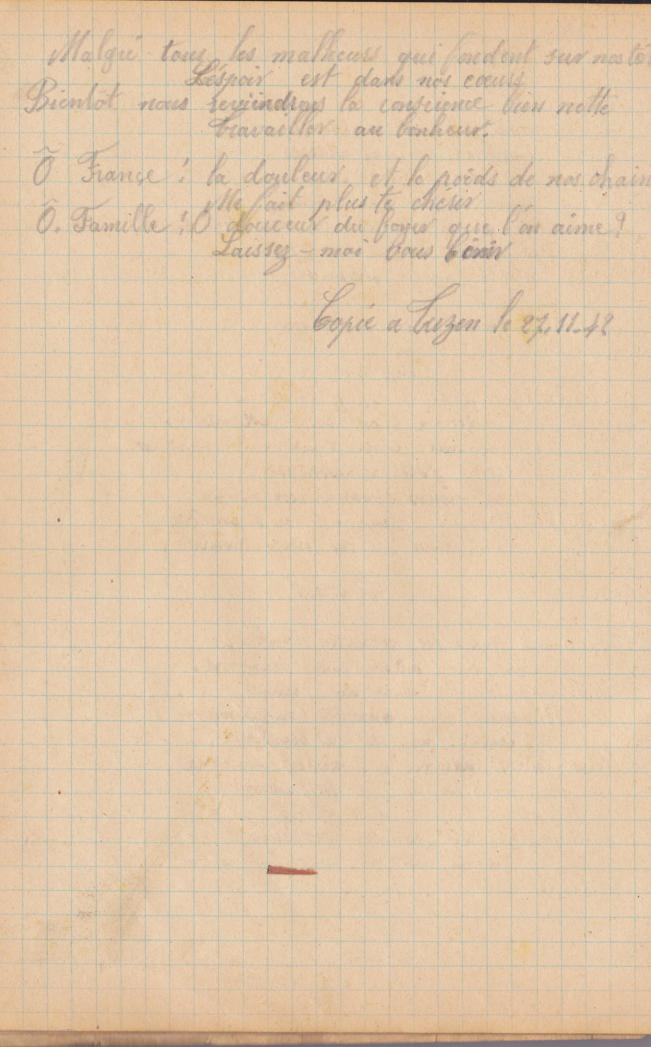 Malgré tous les malheurs qui fondent sur nos têt
L'éspoir est dans nos cœurs
Bientôt nous reviendrons la conscience bien nette
Travailler au bonheur.
Ô France ! la douleur et le poids de nos chain
Me fait plus te cherir
Ô. Famille ! Ô douceur du foyer que l'on aime !
Laissez-moi vous bénir
Copié a Luzen le 27.11-42